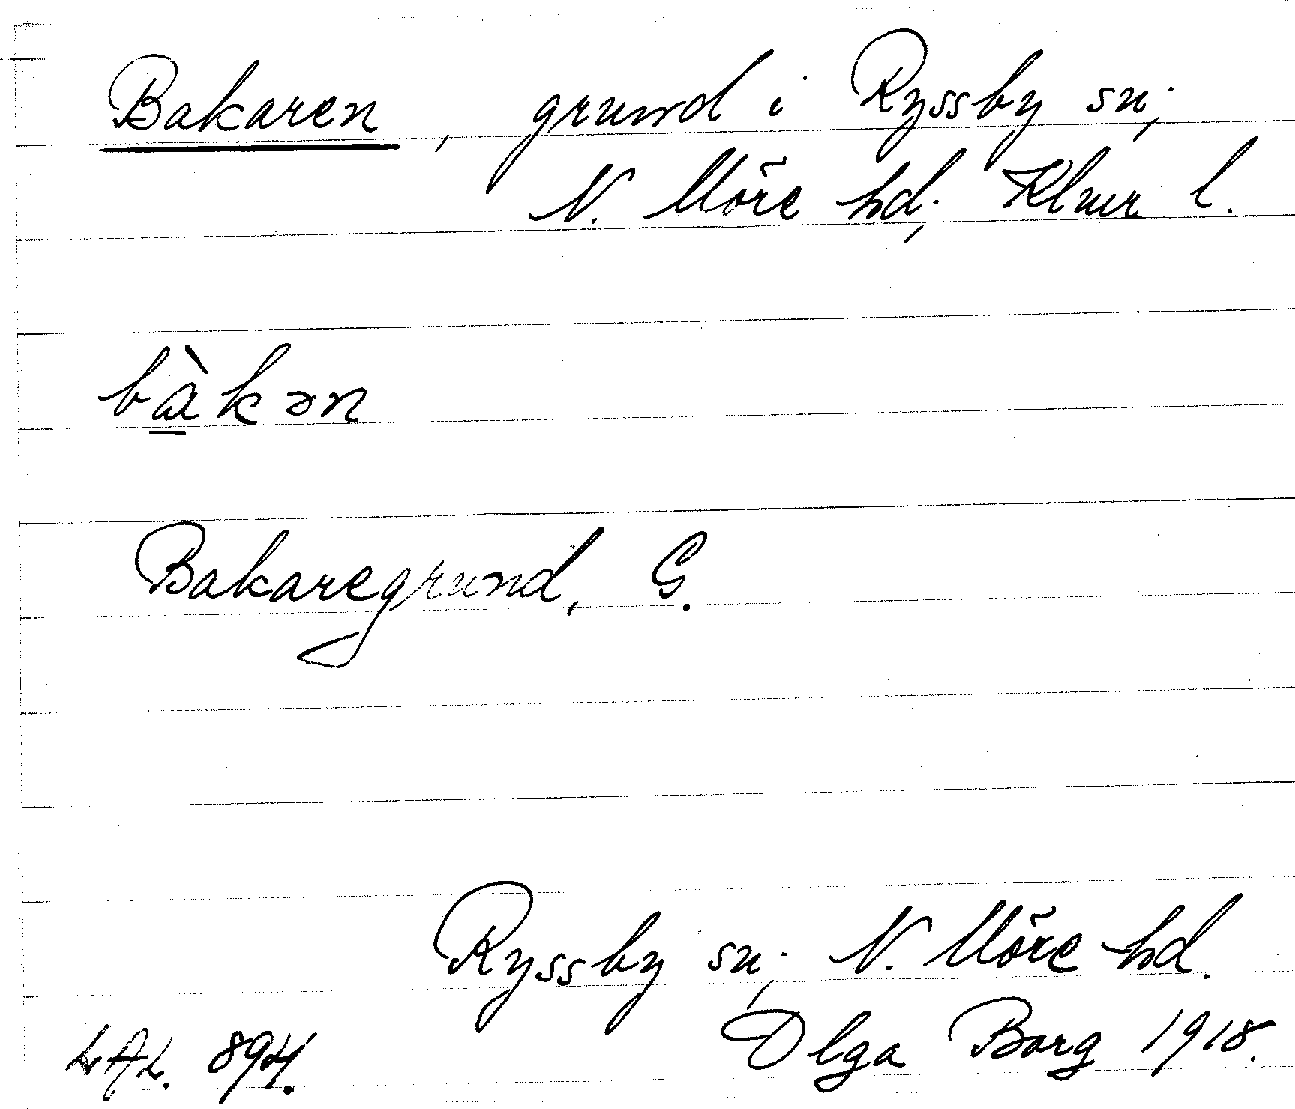 Bakaren, grund i Ryssby sn,
N. Möre hd, Klmr l.
bàkən
Bakaregrund, G.
Ryssby sn, N. Möre hd.
LAL. 894. Olga Borg 1918.